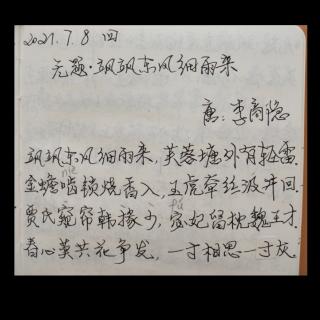 2021.7.8 四
无题·飒飒东风细雨来
唐:李商隐
飒飒东风细雨来,芙蓉塘外有轻雷
nie
金蟾啮锁烧香入,玉虎牵丝汲井回
贾氏窥帘韩掾少,宓妃留枕魏王才
春心莫共花争发,一寸相思一寸灰